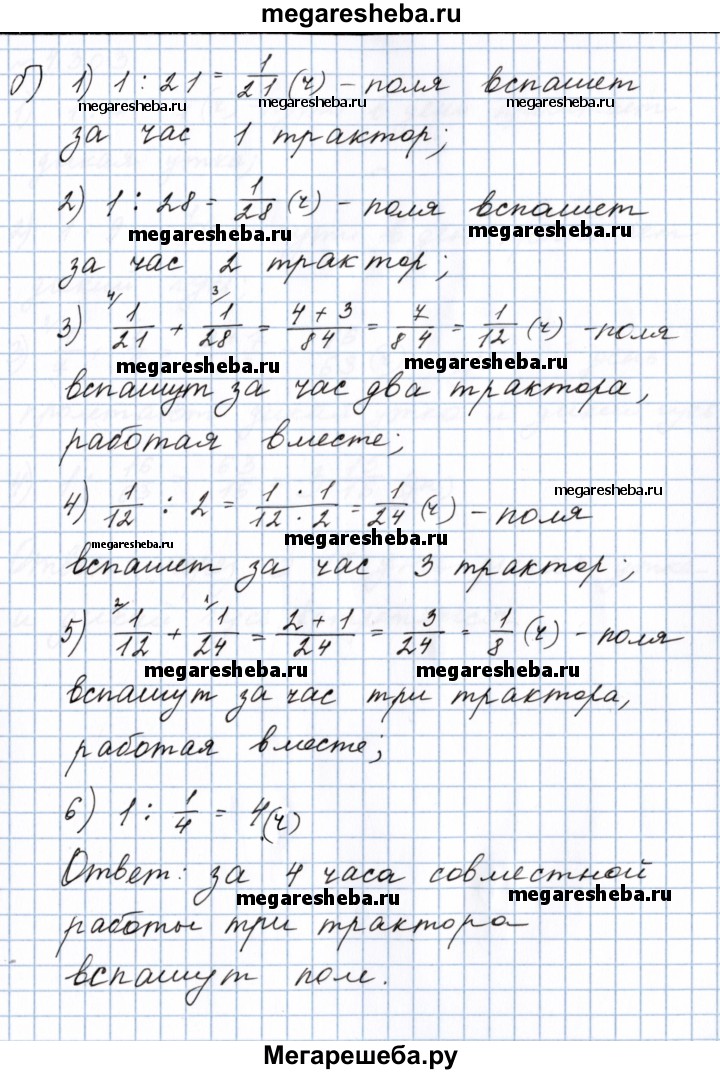 megaresheba.ru
б) 1) 1 : 21 = 1/21 (ч) – поля вспашет
megaresheba.ru megaresheba.ru
за час 1 трактор;
2) 1 : 28 = 1/28 (ч) – поля вспашет
megaresheba.ru megaresheba.ru
за час 2 трактор;
3) 4/ 1/21 + 3/ 1/28 = 4 + 3/84 = 7/84 = 1/12 (ч) – поля
megaresheba.ru megaresheba.ru
вспашут за час два трактора,
работая вместе;
megaresheba.ru
4) 1/12 : 2 = 1 · 1/12 · 2 = 1/24 (ч) – поля
megaresheba.ru
вспашет за час 3 трактор;
5) 2/ 1/12 + 1/ 1/24 = 2 + 1/24 = 3/24 = 1/8 (ч) – поля
megaresheba.ru megaresheba.ru
вспашут за час три трактора,
работая вместе;
6) 1 : 1/4 = 4 (ч)
Ответ: за 4 часа совместной
megaresheba.ru megaresheba.ru
работы три трактора
вспашут поле.
Мегарешеба.ру